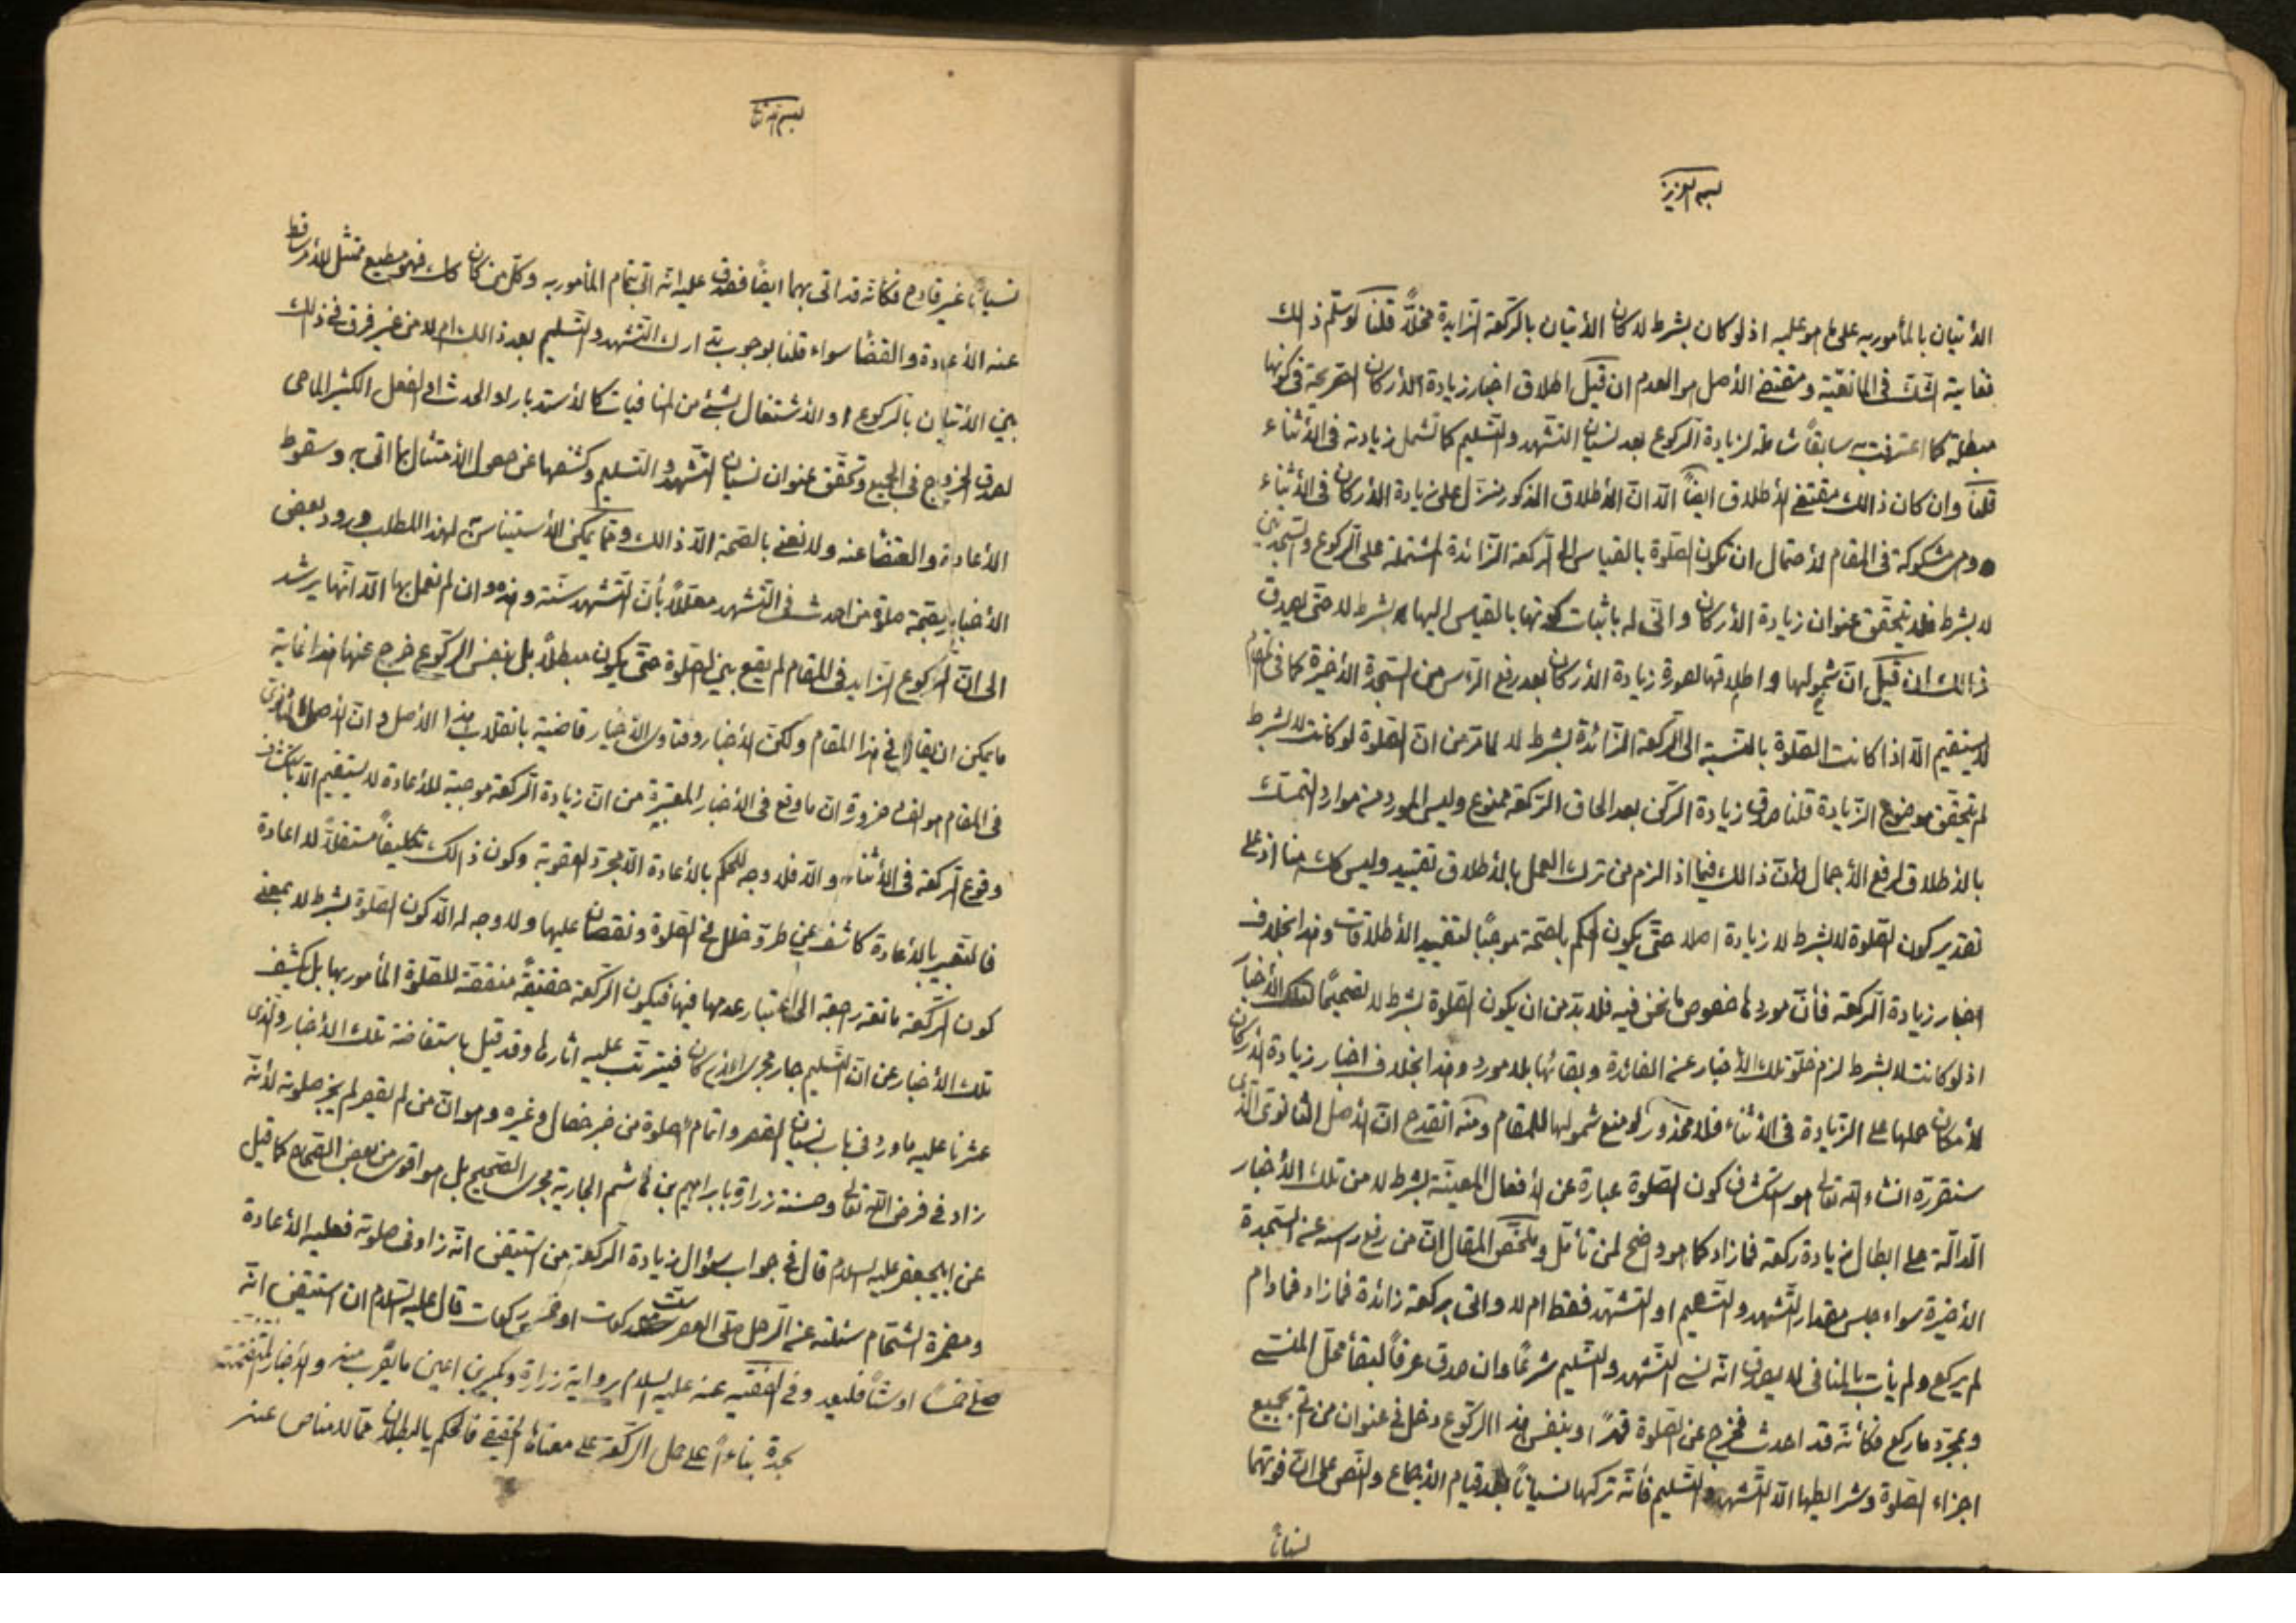 بسمه العزيز
الأتيان بالمأمور به على ما هو عليه اذ لو كان بشرط لا كان الأتيان بالركعة الزايدة مخلاً قلنا لو سلّم ذلك
فغاية الشك في المانعية ومقتضى الأصل هو العدم ان قيل اطلاق اخبار زيادة الأركان الصريحة في كونها
مبطلة كما اعترفت به سابقاً شاملة لزيادة الركوع بعد نسيان التشهد والتسليم كما تشمل زيادته في الأثناء
قلنا وان كان ذلك مقتضى الأطلاق ايضاً الّا انّ الأطلاق المذكور منزّل على زيادة الأركان في الأثناء
وهي مشكوكة في المقام لأحتمال ان تكون الصلوة بالقياس الى الركعة الزائدة المشتملة على الركوع والسجدتين
لا بشرط فلا يتحقق عنوان زيادة الأركان وانّى له باثبات كونها بالقياس اليها بشرط لا حتى يصدق
ذلك ان قيل انّ شمولها واطلاقها لصورة زيادة الأركان بعد رفع الرأس من السجدة الأخيرة كما في المقام
لا يستقيم الّا اذا كانت الصلوة بالنسبة الى الركعة الزائدة بشرط لا لما مرّ من انّ الصلوة لو كانت لا بشرط
لم يتحقق موضوع الزيادة قلنا صدق زيادة الركن بعد الحاق الركعة ممنوع وليس المورد من موارد التمسك
بالأطلاق لرفع الأجمال لأنّ ذلك فيما اذا لزم من ترك العمل بالأطلاق تقييد وليس كك هنا اذ على
تقدير كون الصلوة لا بشرط لا زيادة اصلا حتى يكون الحكم بالصحة موجباً لتقييد الأطلاقات وهذا بخلاف
اخبار زيادة الركعة فأنّ موردها خصوص ما نحن فيه فلا بد من ان يكون الصلوة بشرط لا تصحيحاً لتلك الأخبار
اذ لو كانت لا بشرط لزم خلوّ تلك الأخبار عن الفائدة وبقائها بلا مورد وهذا بخلاف اخبار زيادة الأركان
لأمكان حملها على الزيادة في الأثناء فلا محذور لو منع شمولها للمقام ومنه انقدح انّ الأصل الثانوى الذى
سنقرره انشاء الله تعالى هو استكشاف كون الصلوة عبارة عن الأفعال المعينة بشرط لا من تلك الأخبار
الدالّة على ابطال زيادة ركعة فما زاد كما هو واضح لمن تأمّل وملخّص المقال انّ من رفع رأسه عن السجدة
الأخيرة سواء جلس مقدار التشهد والتسليم او التشهد فقط ام لا واتى بركعة زائدة فما زاد فما دام
لم يركع ولم يأت بالمنافى لا يصدق انّه نسى التشهد والتسليم شرعاً وان صدق عرفاً لبقاء محلّ المنسى
وبمجرّد ما ركع فكأنّه قد احدث فخرج عن الصلوة قهراً وبنفس هذا الركوع دخل في عنوان من اتى بجميع
اجزاء الصلوة وشرايطها الّا التشهد والتسليم فأنّه تركهما نسياناً وبعد قيام الأجماع والنص على انّ فوتهما
نسياناً
بسمه تعالى
نسياناً غير قادح فكأنّه قد اتى بهما ايضاً فصدق عليه انّه اتى بتمام المأمور به وكلّ من كان كك فهو مطيع ممتثل للأمر ساقط
عنه الأعادة والقضاء سواء قلنا بوجوب تدارك التشهد والتسليم بعد ذلك ام لا من غير فرق في ذلك
بين الأتيان بالركوع او الأشتغال بشئ من المنافيات كالأستدبار او الحدث او الفعل الكثير الماحى
لصدق الخروج في الجميع وتحقّق عنوان نسيان التشهد والتسليم وكشفها عن حصول الأمتثال بما اتى به وسقوط
الأعادة والقضاء عنه ولا نعنى بالصحة الّا ذلك وممّا يمكن الأستيناس به لهذا المطلب ورود بعض
الأخبار بصحة صلوة من احدث في التشهد معلّلاً بأنّ التشهد سنّة وهذه وان لم نعمل بها الّا انّها يرشد
الى انّ الركوع الزايد في المقام لم يقع بين الصلوة حتى يكون مبطلاً بل بنفس الركوع خرج عنها هذا غاية
ما يمكن ان يقال في هذا المقام ولكن الأخبار وفتاوى الأخيار قاضية بانقلاب هذا الأصل وانّ الأصل الثانوى
في المقام هو الفساد ضرورة انّ ما وقع في الأخبار المعتبرة من انّ زيادة الركعة موجبة للأعادة لا يستقيم الّا باستكشاف
وقوع الركعة في الأثناء والّا فلا وجه للحكم بالأعادة الّا مجرّد العقوبة وكون ذلك تكليفاً مستقلاً لا اعادة
فالتعبير بالأعادة كاشف عن طروّ خلل في الصلوة ونقصان عليها ولا وجه له الّا كون الصلوة بشرط لا بمعنى
كون الركعة مانعة راجعة الى اعتبار عدمها فيها فيكون الركعة حقيقةً منقصة للصلوة المأمور بها بل يكشف
تلك الأخبار عن انّ التسليم جار مجرى الأركان فيترتب عليه اثارها وقد قيل باستفاضة تلك الأخبار والذى
عثرنا عليه ما ورد في باب نسيان القصر واتمام الصلوة من خبر خصال وغيره وهو انّ من لم يقصر لم يجز صلوته لأنّه
زاد في فرض الله تعالى وحسنة زرارة بابراهيم بن هاشم الجارية مجرى الصحيح بل هو اقوى من بعض الصحاح كما قيل
عن ابيجعفر عليه السلام قال في جواب سؤال زيادة الركعة من استيقن انّه زاد في صلوته فعليه الأعادة
ومضمرة الشحام سئلته عن الرجل صلّى العصر ستّ ركعات او خمس ركعات قال عليه السلام ان استيقن انّه
صلّى خمساً او ستّاً فليعد وفي الفقيه عنه عليه السلام برواية زرارة وبكير بن اعين ما يقرب منه والأخبار المتضمنة
بناءً على حمل الركعة على معناها الحقيقى فالحكم بالبطلان ممّا لا مناص عنه